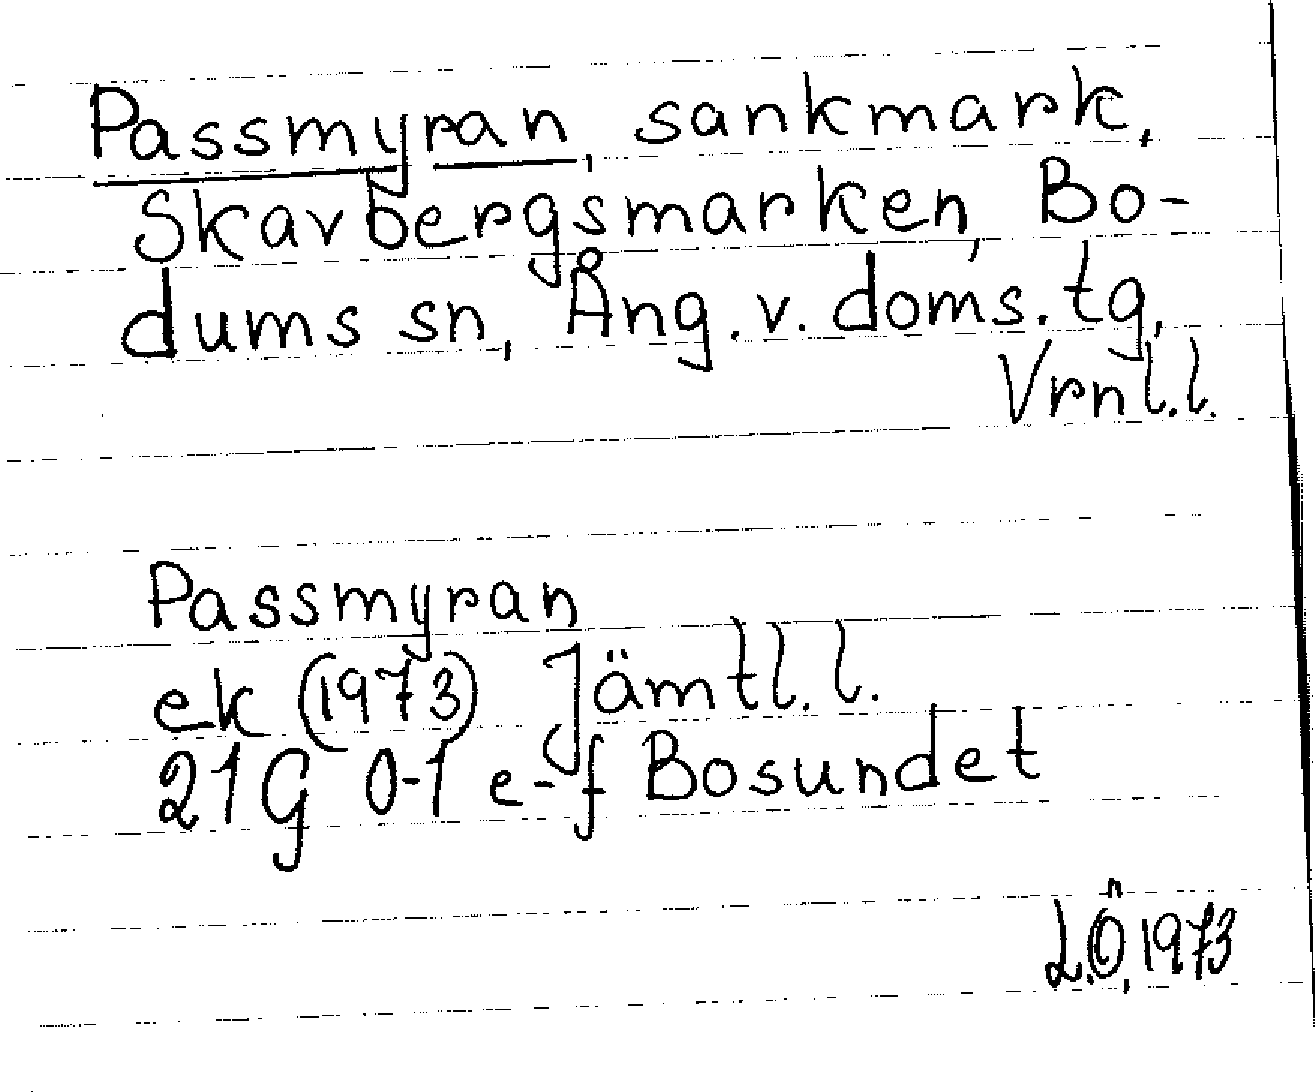 Passmyran, sankmark,
Skavbergsmarken, Bo-
dums sn, Ång. v. doms. tg,
Vrnl.l.
Passmyran
ek (1973) Jämtl.l.
21G 0-1 e-f Bosundet
L.Ö, 1973